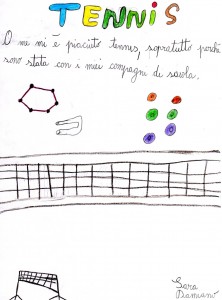 TENNIS
A me mi è piaciuto tennis, sopratutto perchè
sono stata con i miei compagni di scuola.
Sara
Damiano